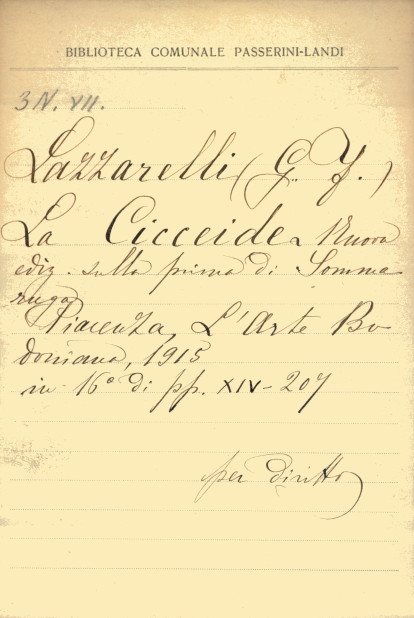 BIBLIOTECA COMUNALE PASSERINI-LANDI
3 N. VII.
Lazzarelli (G. F.)
La Cicceide. Nuova
ediz. sulla prima di Somma
ruga
Piacenza, L'Arte Bo-
doniana, 1915
in 16° di pp. XIV-207
per diritto